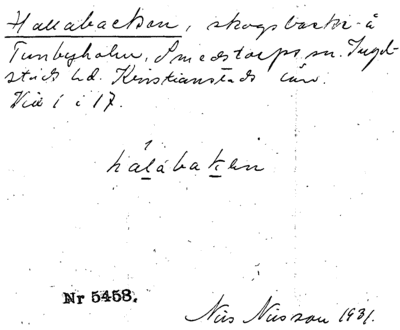 Hallabacken, skogsbacke å
Tunbyholm, Smedstorps sn. Ingel-
stads hd. Kristianstads län.
VII 1 i 17.
hal̲ábak̲en
Nr 5458.
Nils Nilsson 1931.